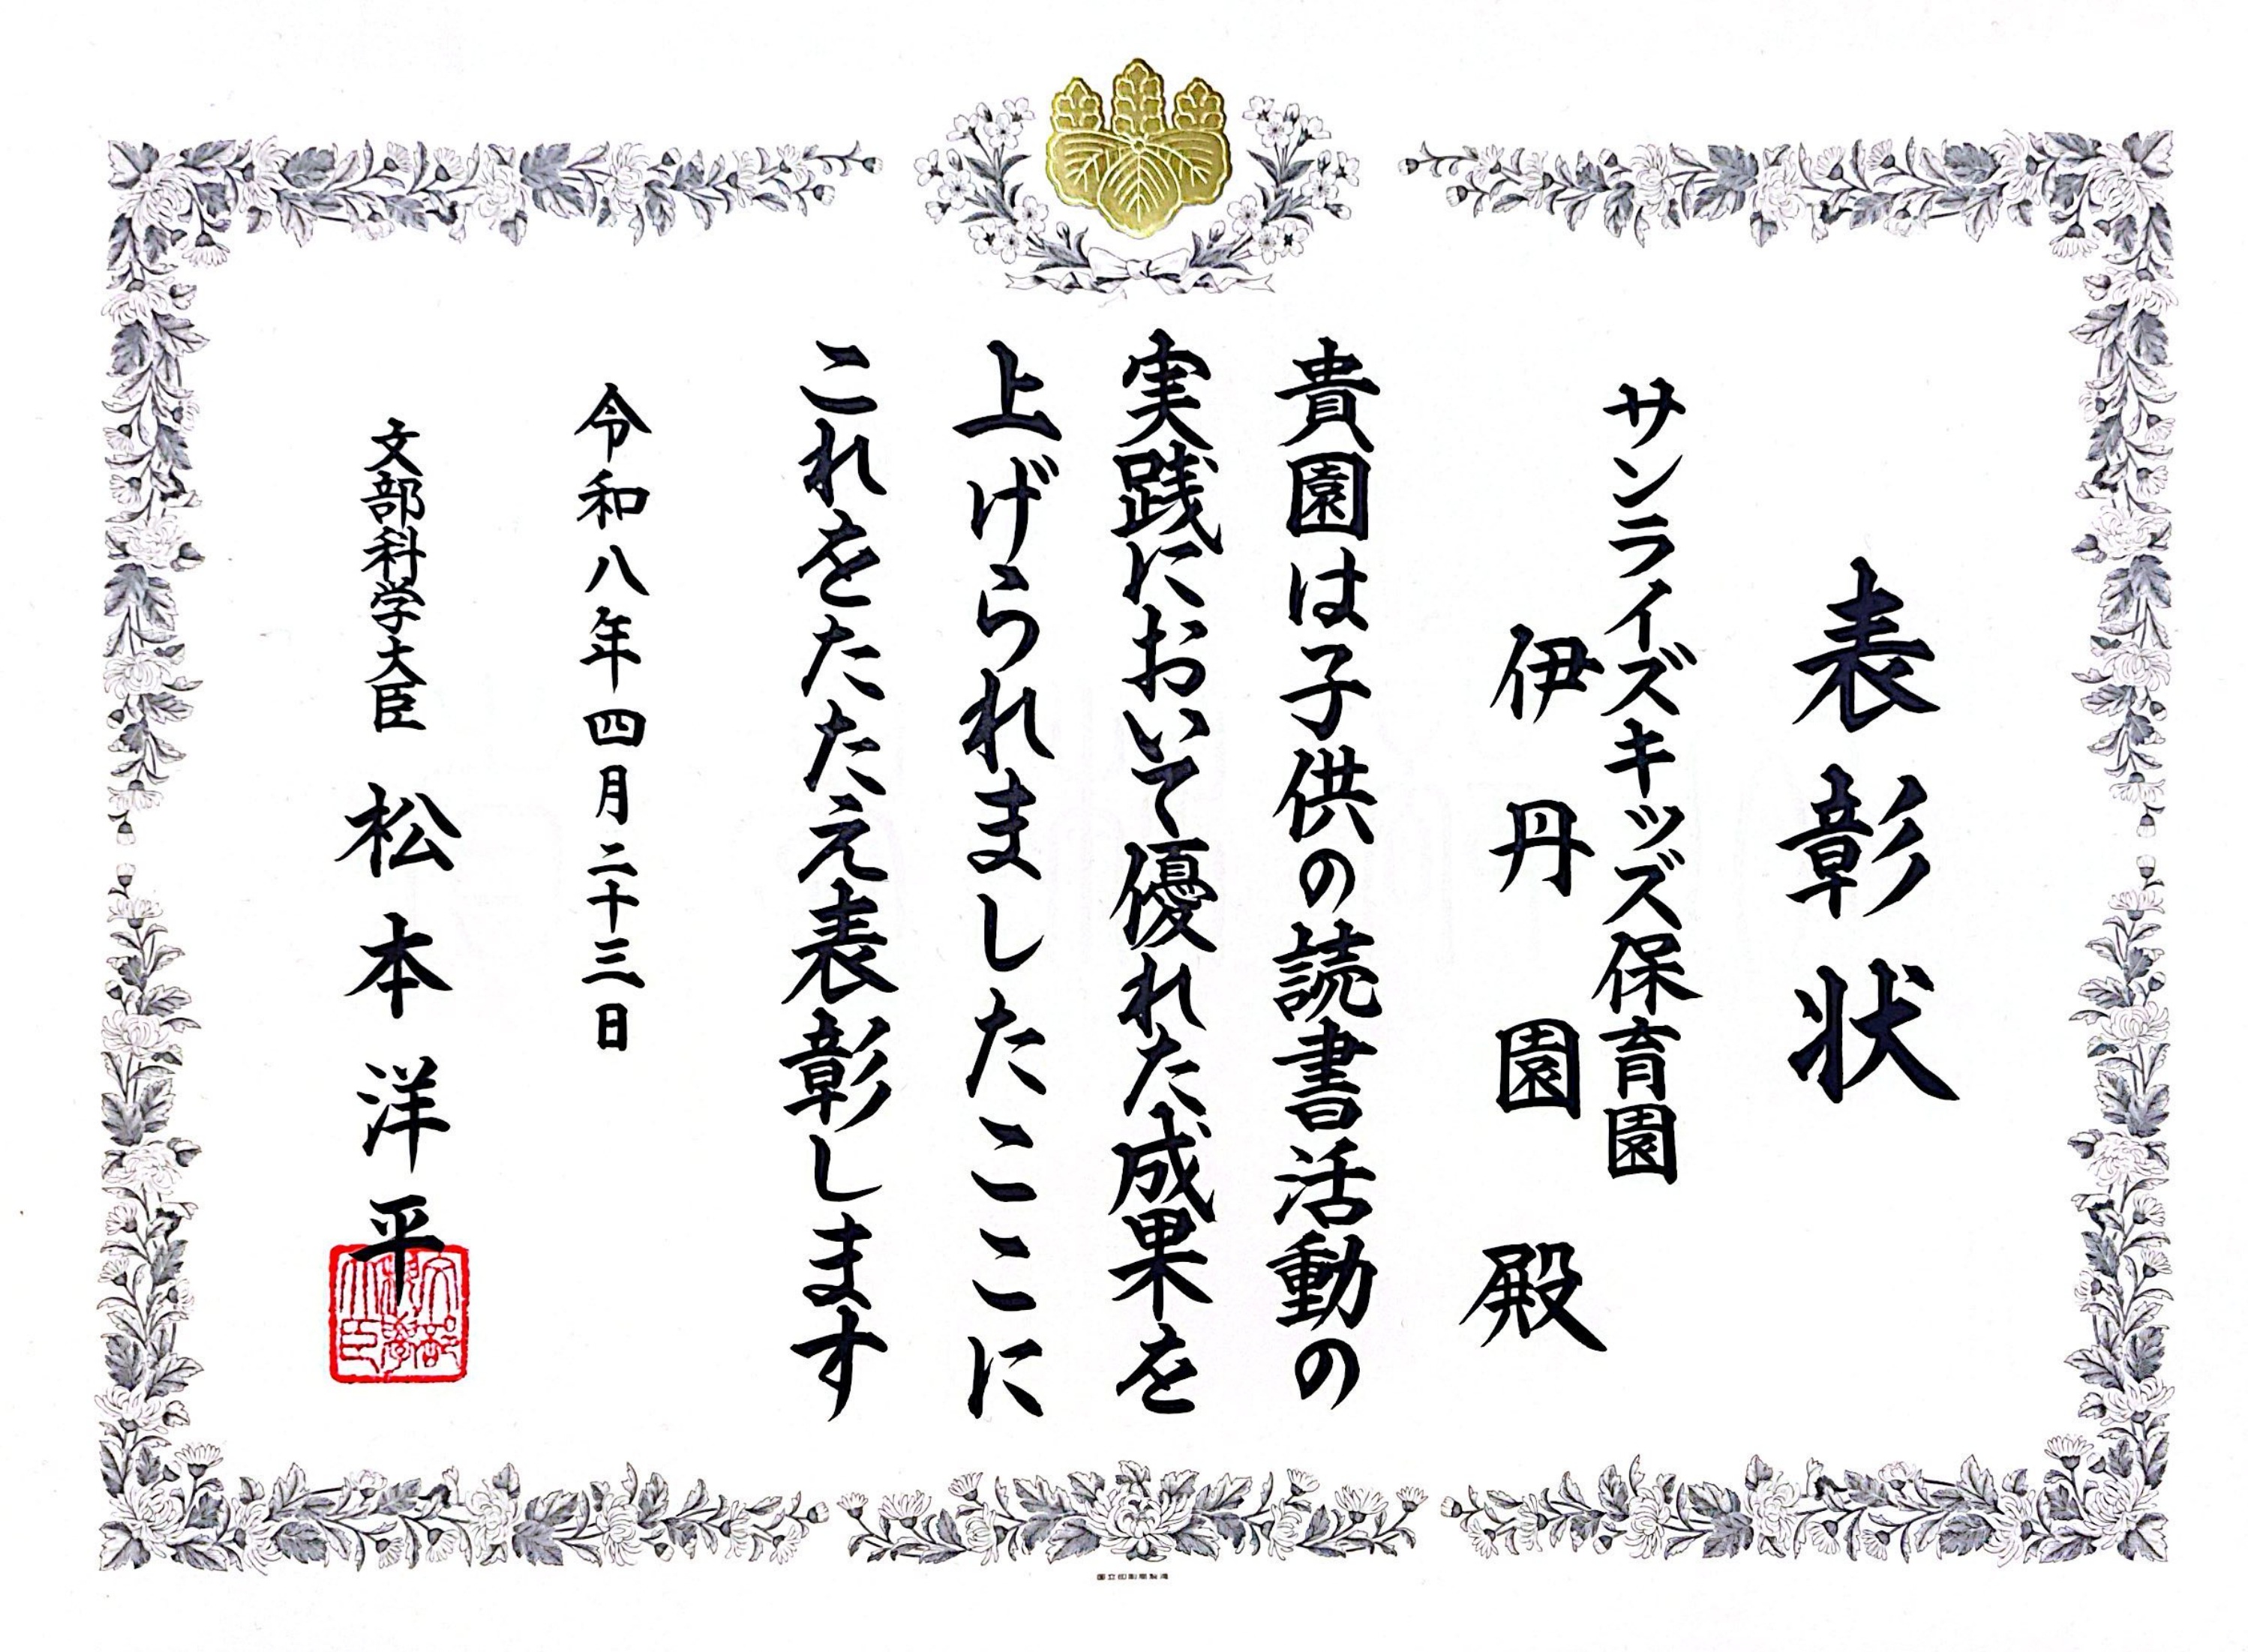 表彰状
サンライズキッズ保育園
伊丹園殿
貴園は子供の読書活動の
実践において優れた成果を
上げられましたここに
これをたたえ表彰します
令和八年四月二十三日
文部科学大臣 松本洋平
文部科学大臣
国立印刷局製造